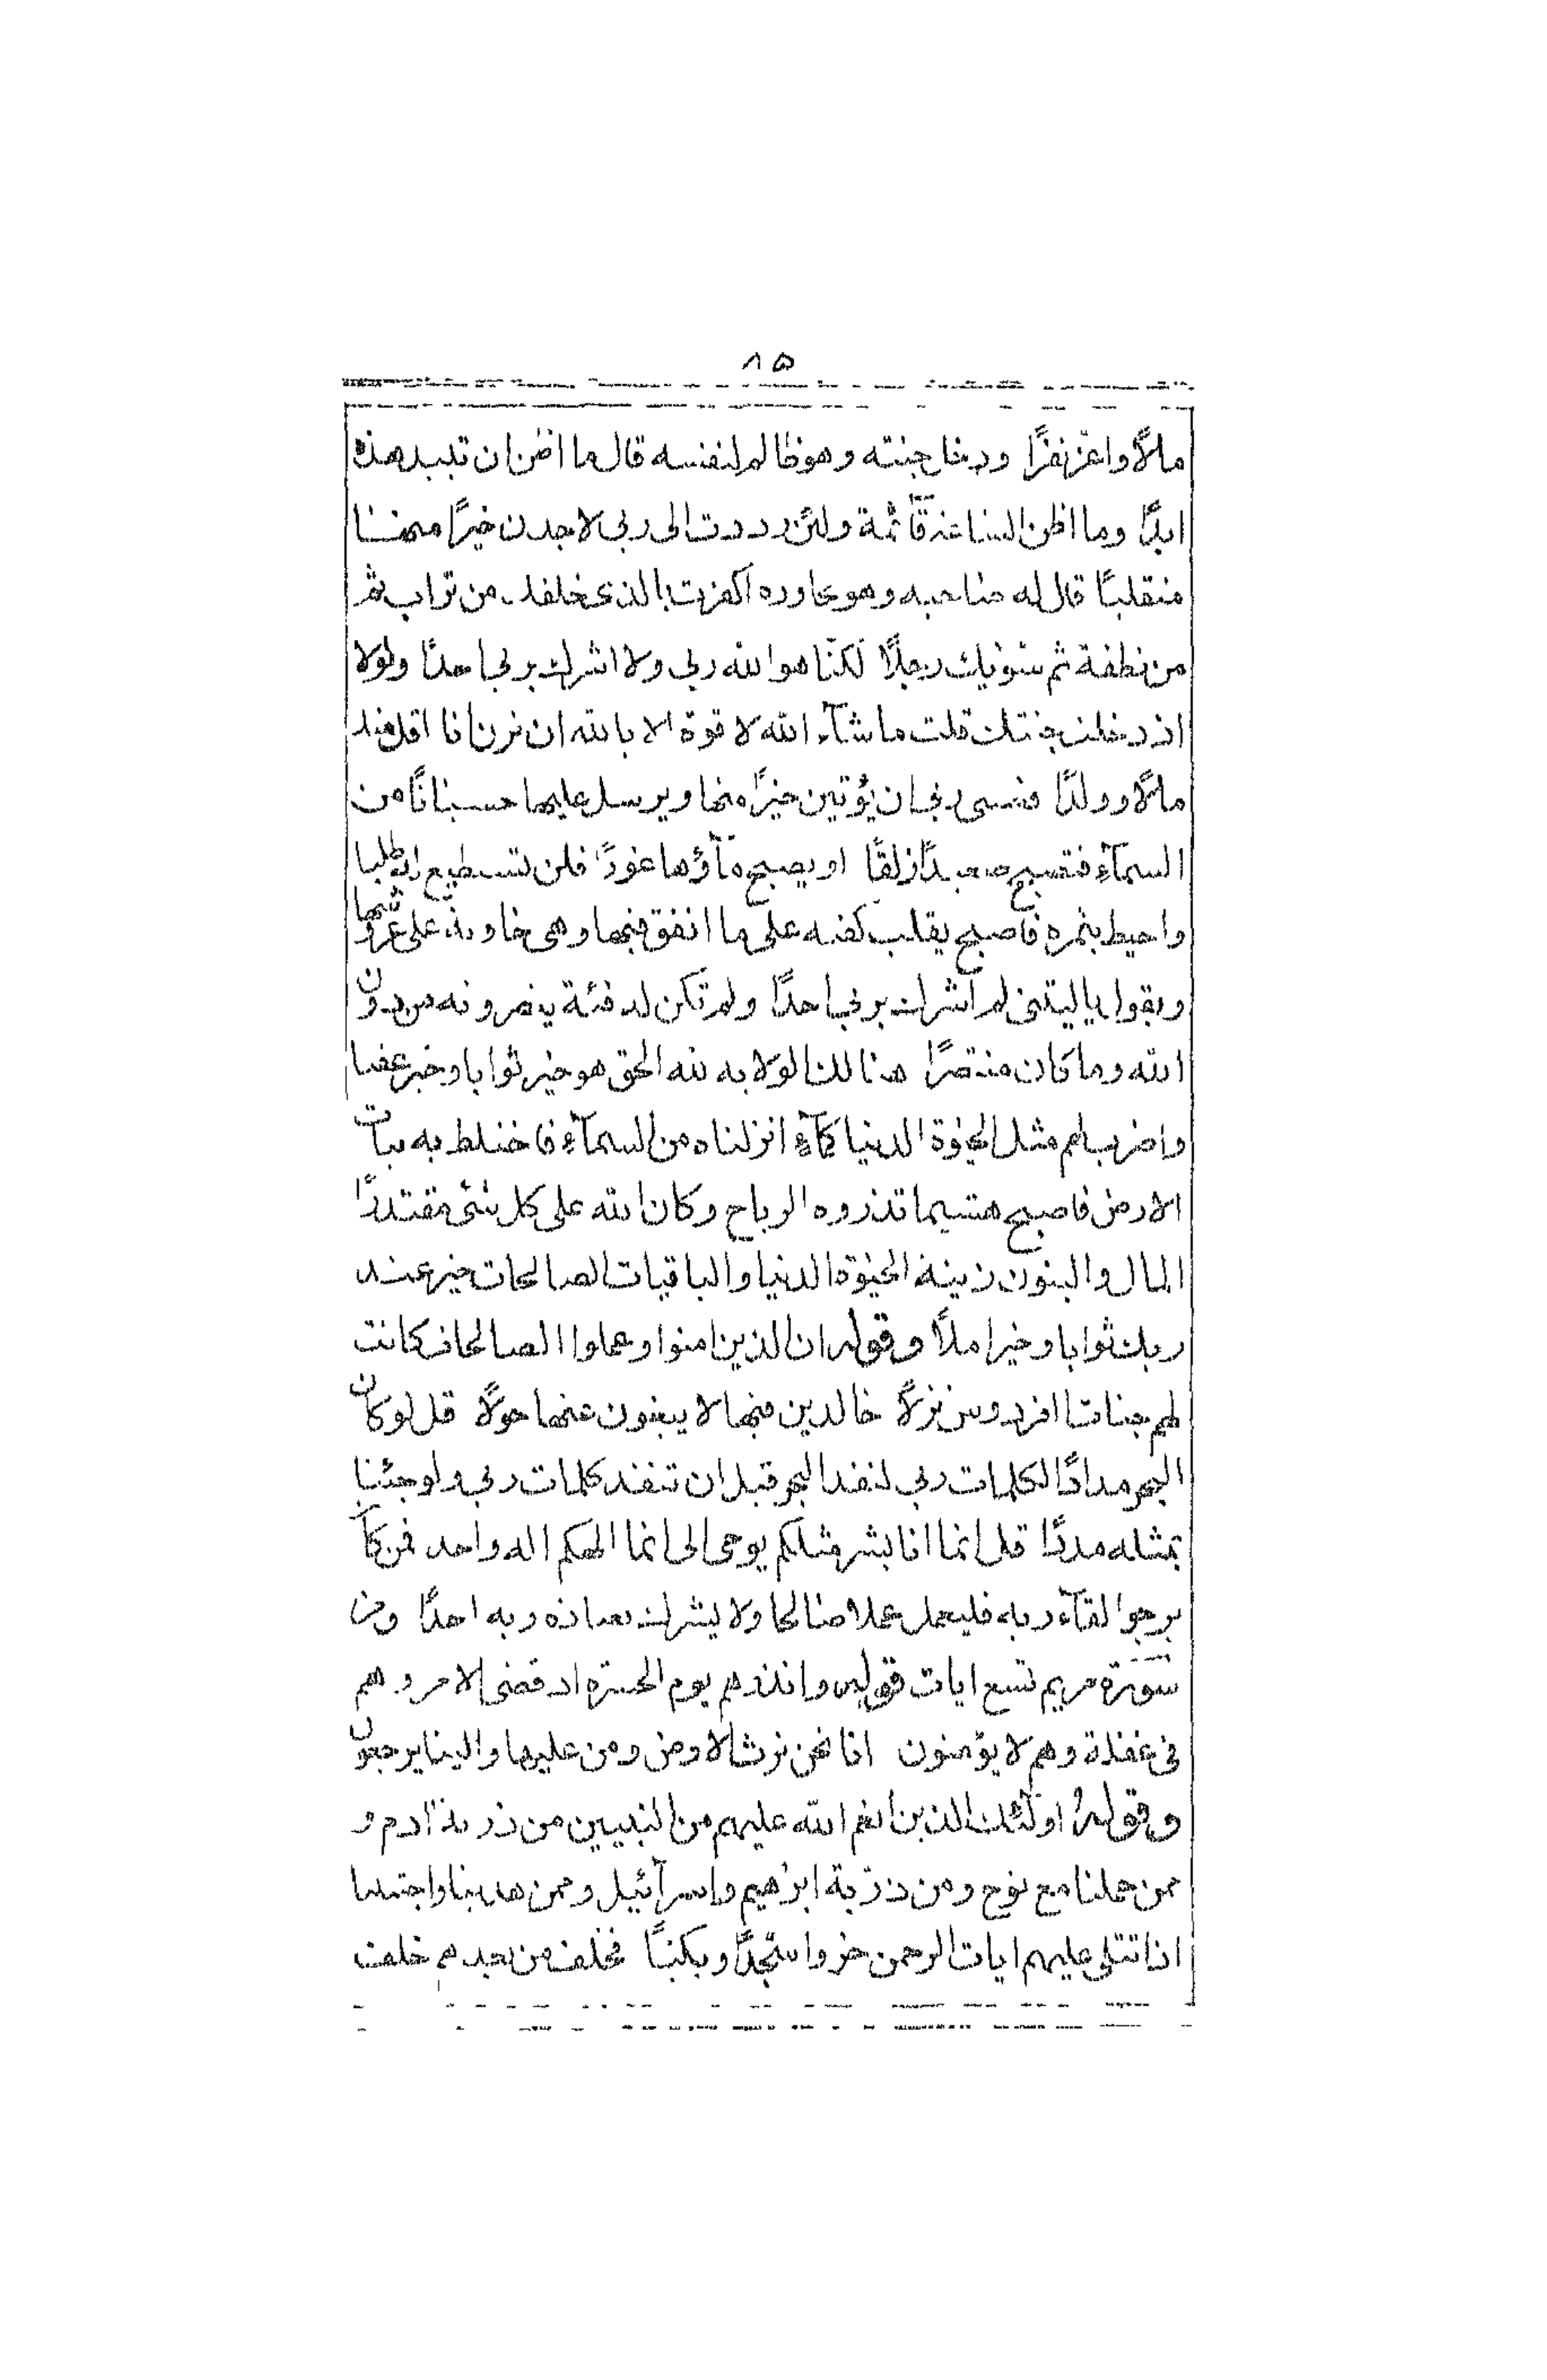 ٨٥
مالًا واعزّ نفرًا ودخل جنته وهو ظالم لنفسه قال ما اظن ان تبيد هذه
ابدًا وما اظن الساعة قآئمة ولئن رددت الى ربى لاجدن خيرًا منها
منقلبًا قال له صاحبه وهو يحاوره اكفرت بالذى خلقك من تراب ثم
من نطفة ثم سوٰيك رجلًا لكنّا هو الله ربى ولا اشرك بربى احدًا ولولا
اذ دخلت جنتك قلت ما شآء الله لا قوة الا بالله ان ترن انا اقل منك
مالًا وولدًا فعسى ربى ان يؤتين خيرًا منها ويرسل عليها حسبانًا من
السمآء فتصبح صعيدًا زلقًا او يصبح مآؤها غورًا فلن تستطيع له طلبا
واحيط بثمره فاصبح يقلب كفيه على ما انفق فيها وهى خاوية على عروشها
ويقول ياليتنى لم اشرك بربى احدًا ولم تكن له فئة ينصرونه من دون
الله وما كان منتصرًا هنالك الولايه لله الحق هو خير ثوابا وخير عقبا
واضرب لهم مثل الحيٰوة الدنيا كمآء انزلناه من السمآء فاختلط به نبات
الارض فاصبح هشيما تذروه الرياح وكان الله على كل شئ مقتدرًا
المال والبنون زينة الحيٰوة الدنيا والباقيات الصالحات خير عند
ربك ثوابا وخير املًا وقوله ان الذين امنوا وعملوا الصالحات كانت
لهم جنات الفردوس نزلًا خالدين فيها لا يبغون عنها حولًا قل لو كان
البحر مدادًا لكلمات ربى لنفد البحر قبل ان تنفد كلمات ربى ولو جئنا
بمثله مددًا قل انما انا بشر مثلكم يوحى الى انما الهكم اله واحد فمن كان
يرجوا لقآء ربه فليعمل عملا صالحا ولا يشرك بعباده ربه احدًا ومن
سورة مريم تسع ايات قوله وانذرهم يوم الحسرة اذ قضى الامر وهم
فى غفلة وهم لا يؤمنون انا نحن نرث الارض ومن عليها والينا يرجعون
وقوله اولٓئك الذين انعم الله عليهم من النبيين من ذرية ادم و
ممن حملنا مع نوح ومن ذرّية ابرٰهيم واسرآئيل وممن هدينا واجتبينا
اذا تتلى عليهم ايات الرحمن خروا سجّدًا وبكيّا فخلف من بعدهم خلف